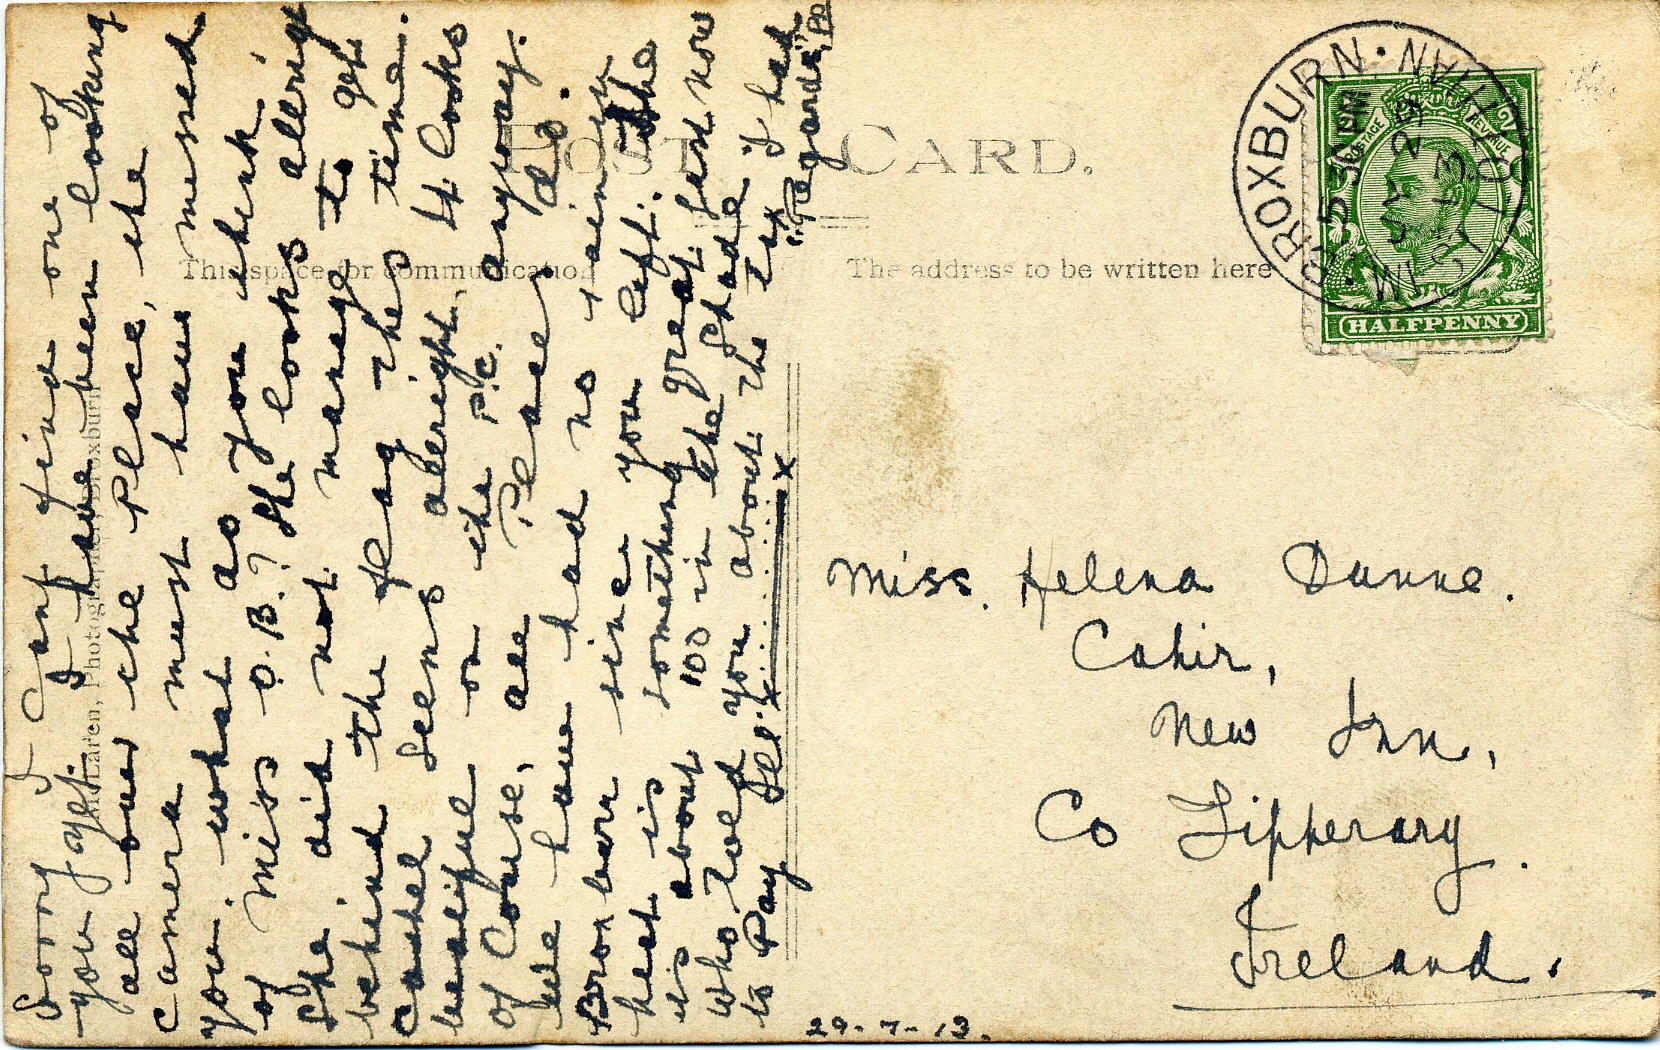 POST CARD.
This space for communication
The address to be written here
Sorry I Cant find one of
you yet. I have been looking
all over the place, the
Camera must have missed
you. what do you think
of Miss O.B.? She looks allright
She did not manage to get
behind the flag this time.
Cashel seems allright, it looks
beautiful on the P.C. anyway.
of Course, all Places do.
We have had no rain in
Broxburn since you left. The
heat is something great. Just now
its about 100 in the Shade
Who told you about the tix I had
to Pay
Regards,
Miss. Helena Dunne.
Cahir,
New Inn,
Co Tipperary.
Ireland.
29-7-13.
BROXBURN · WEST LOTHIAN
5 30 PM
JY 29
13
POSTAGE REVENUE
HALFPENNY
Photographer, Broxburn